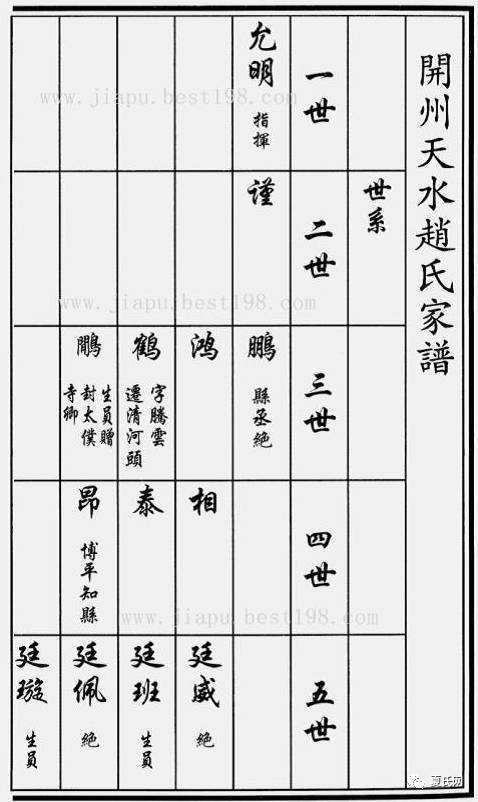 開州天水趙氏家譜
世系
一世
允明 指揮
二世
谨
三世
鵬 縣丞絕
鸿
鹤 字騰雲
遷清河頭
鷳 生員贈
封太僕
寺卿
四世
相
泰
昂 博平知縣
五世
廷威 絕
廷班 生員
廷佩 絕
廷璇 生員
www.jiapu.best198.com
www.jiapu.best198.com
www.jiapu.best198.com
夏氏网